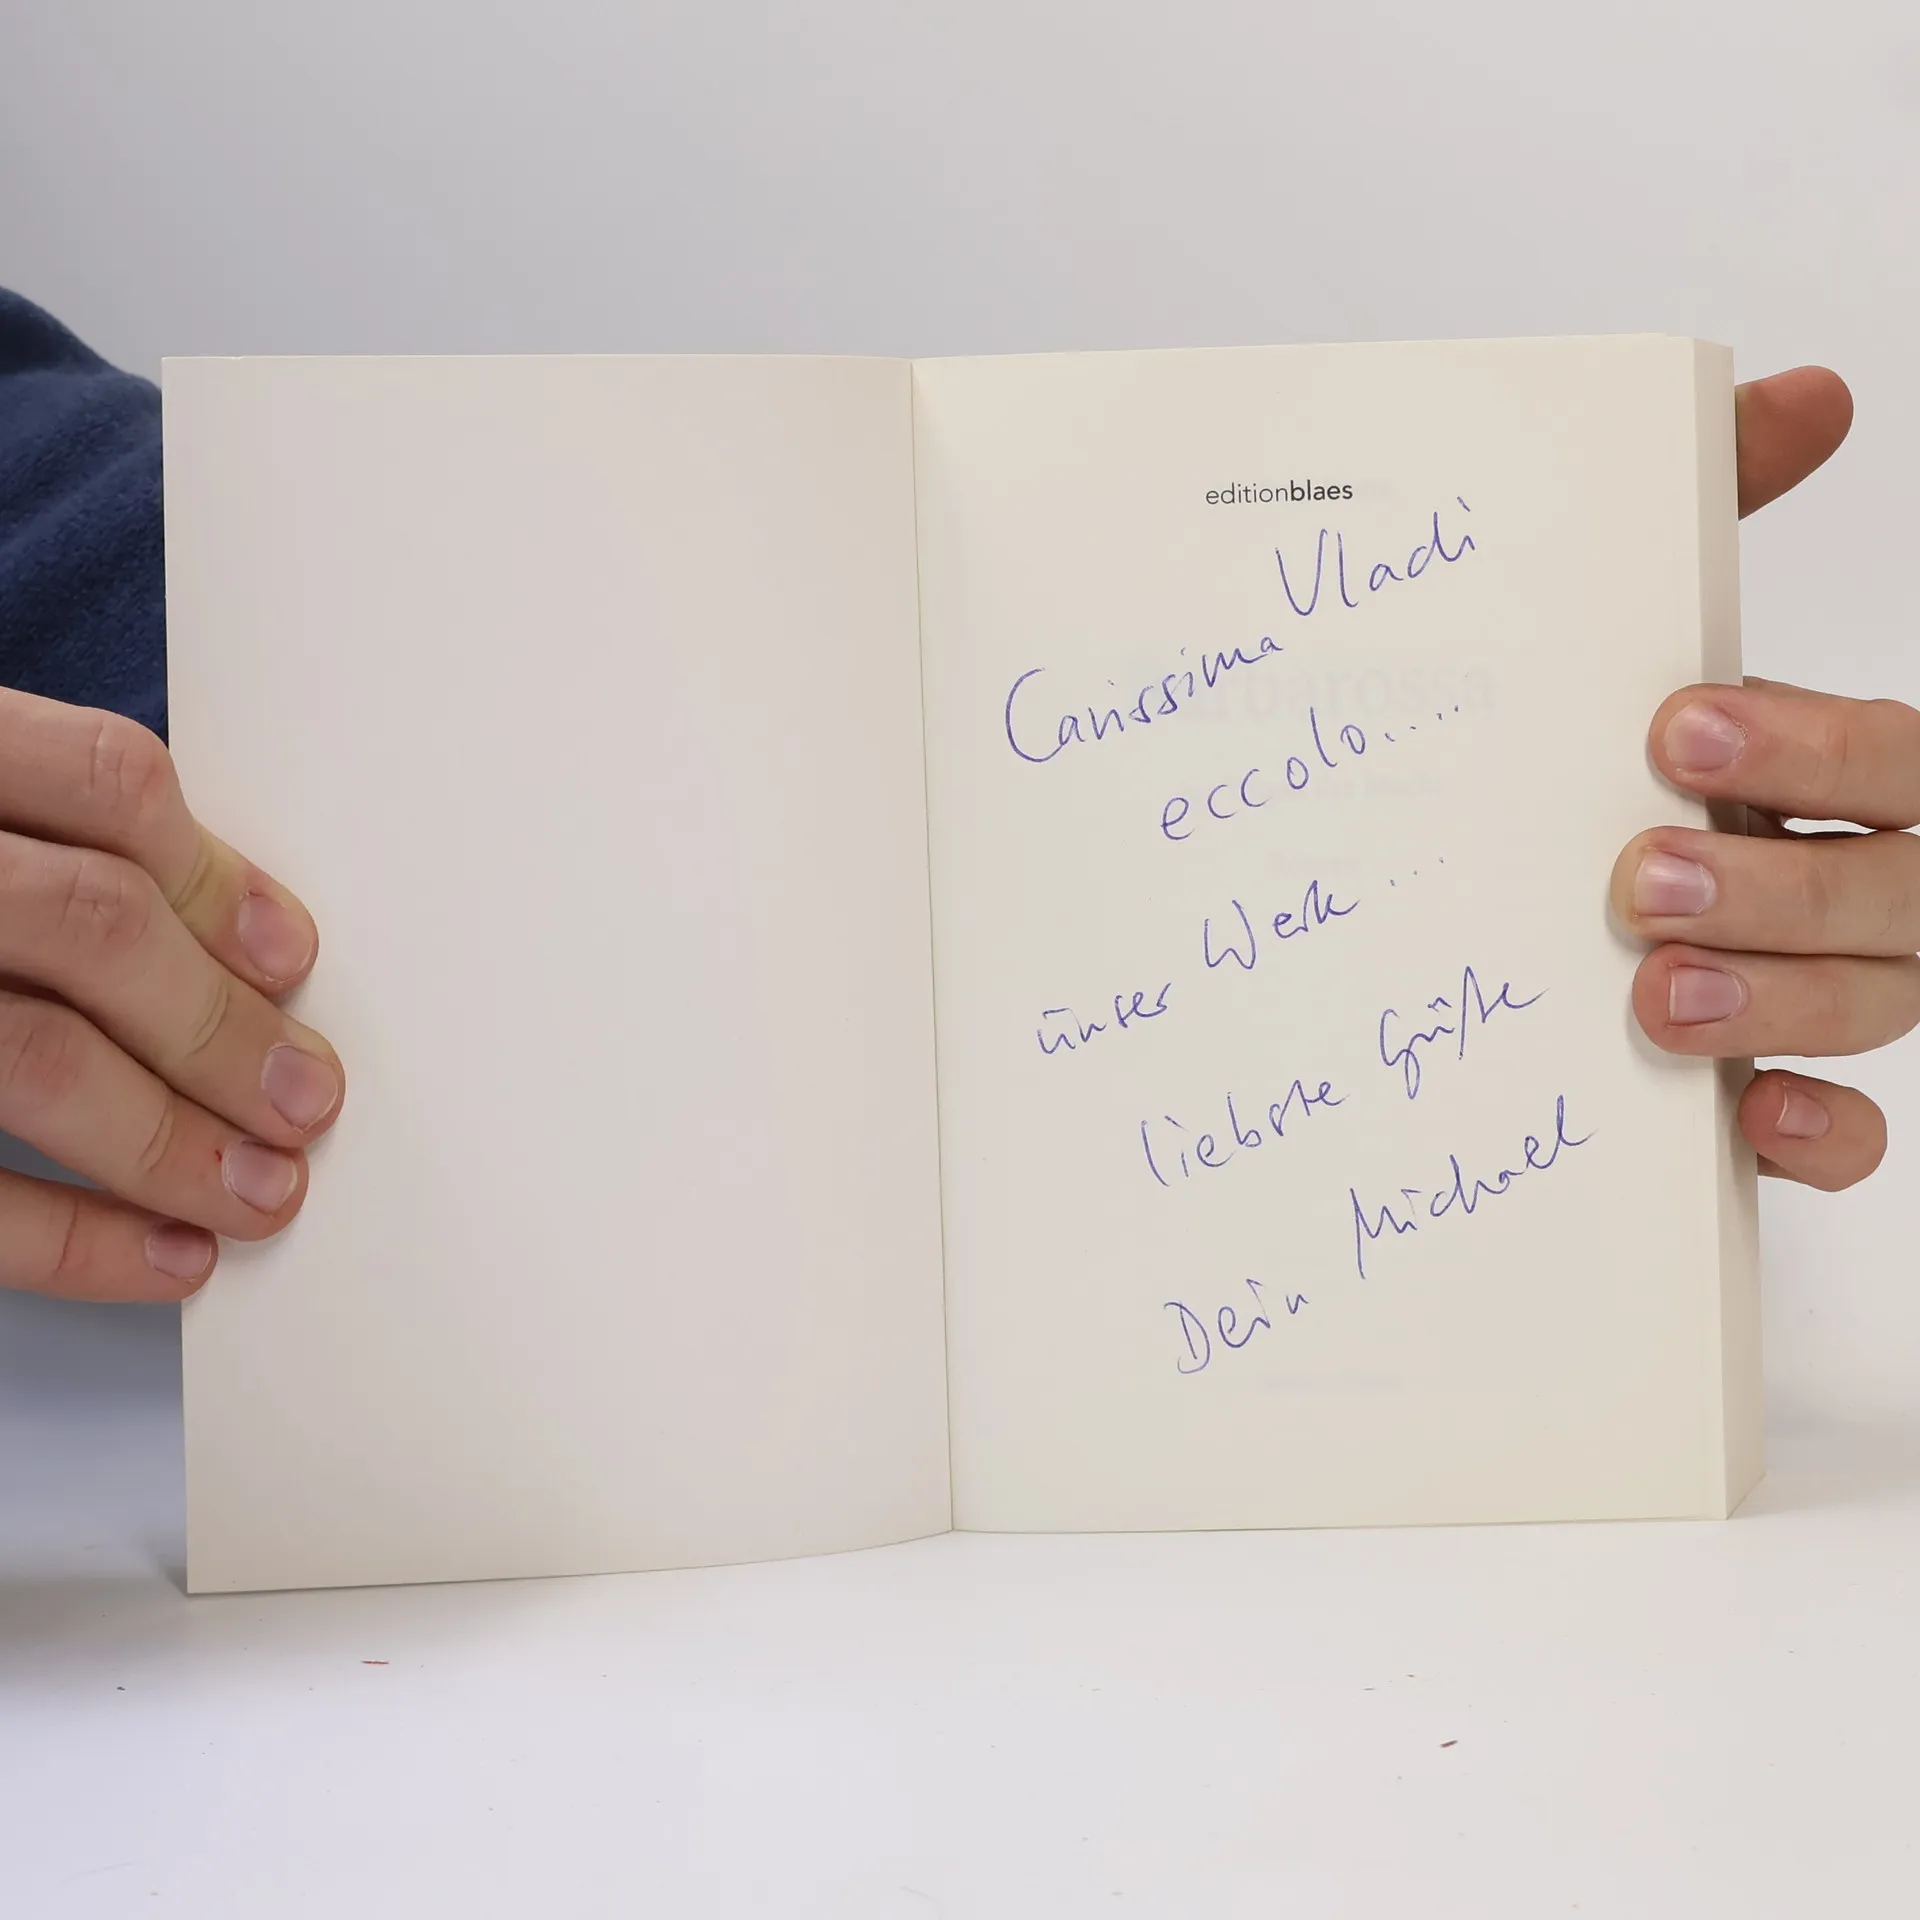 editionblaes
Carissima Vladi
eccolo.....
unser Werk...
liebste Grüße
Dein Michael